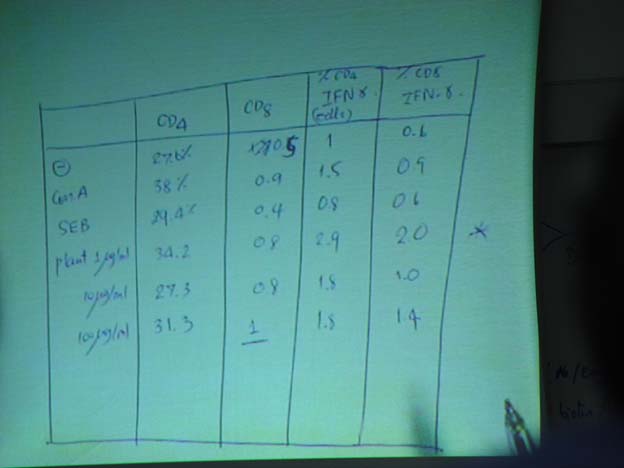 CD4 CD8 % CD4 IFN γ. (cells) % CD8 IFN-γ.
⊖ 27.6% 0.5 1 0.6
Con.A 38% 0.9 1.5 0.9
SEB 29.4% 0.4 0.8 0.6
plant 1 µg/ml 34.2 0.8 2.9 2.0 *
10 µg/ml 27.3 0.8 1.8 1.0
100 µg/ml 31.3 1 1.8 1.4
biotin